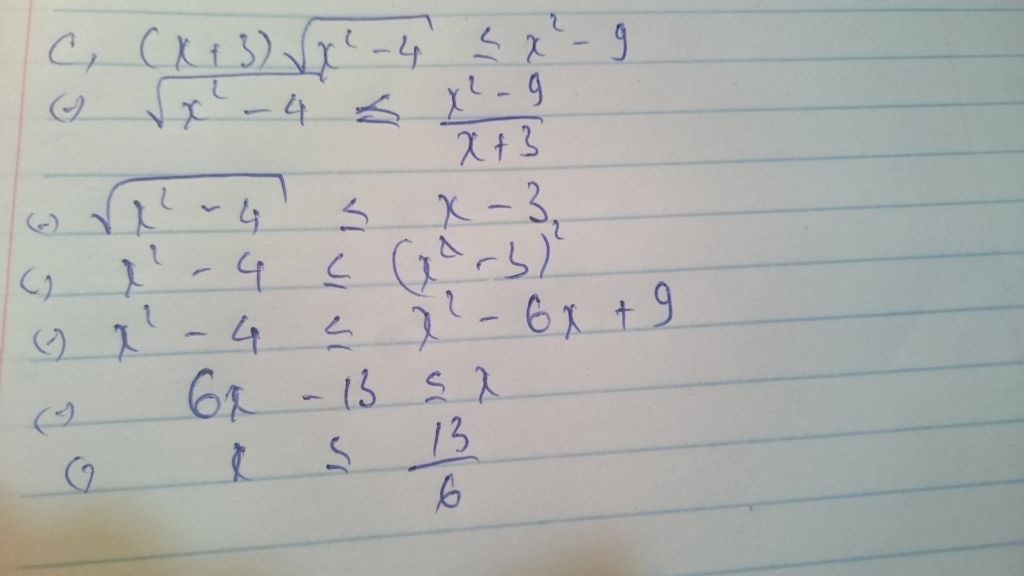 c, (x+3)√(x² - 4) ≤ x² - 9
(=) √(x² - 4) ≤ (x² - 9)/(x+3)
(=) √(x² - 4) ≤ x - 3
(=) x² - 4 ≤ (x² - 3)²
(=) x² - 4 ≤ x² - 6x + 9
(=) 6x - 13 ≤ x
(=) x ≤ 13/6